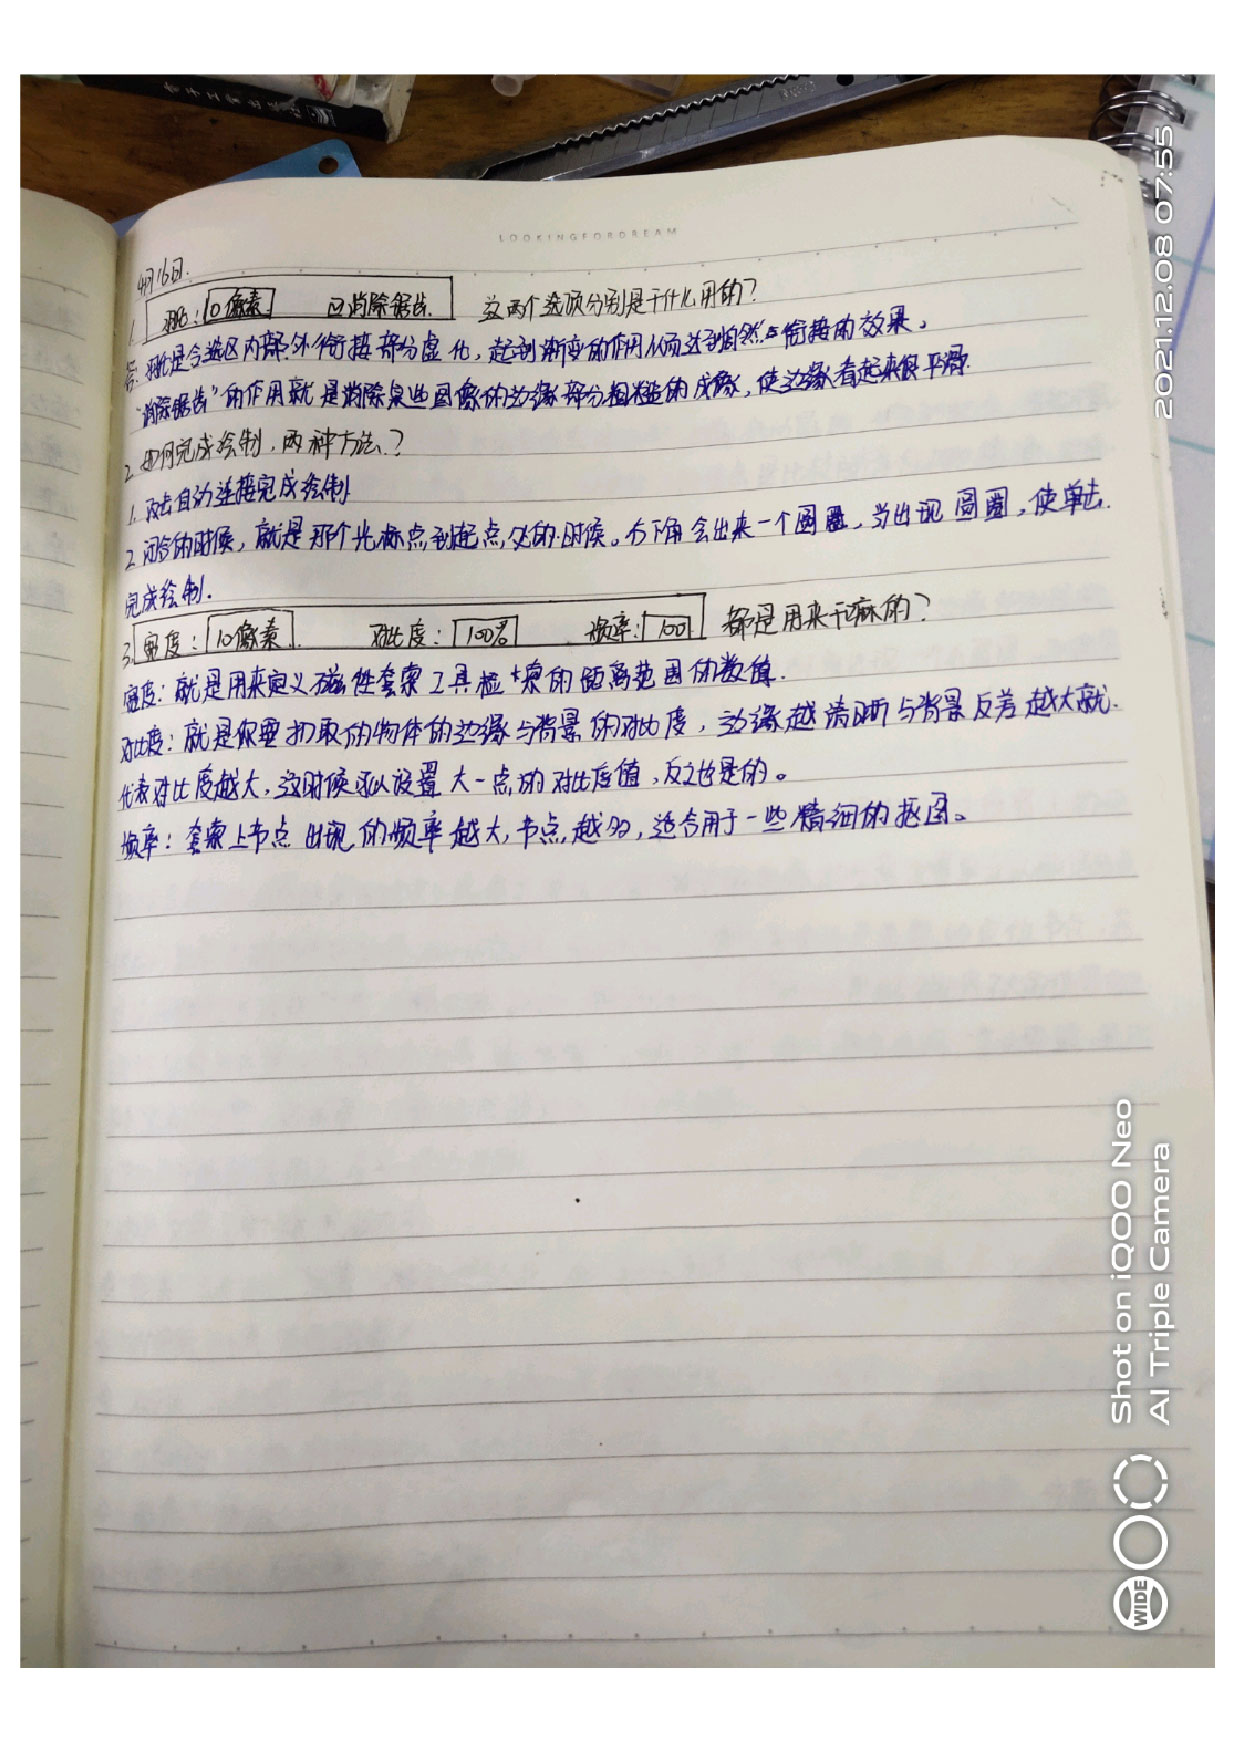 电子工业出版社
LOOKINGFORDREAM
4月16日.
1. 羽化:0像素 ☑消除锯齿. 这两个选项分别是干什么用的?
答:羽化是令选区内部外衔接部分虚化,起到渐变的作用从而达到自然衔接的效果,
“消除锯齿”的作用就是消除某些图像的边缘部分粗糙的成像,使边缘看起来很平滑.
2. 如何完成绘制,两种方法?
1. 双击自动连接完成绘制
2. 闭合的时候,就是那个光标点到起点处的时候。右下角会出来一个圆圈,当出现圆圈,使单击.
完成绘制.
3. 宽度:10像素. 对比度:100% 频率:100 都是用来干麻的?
宽度:就是用来定义磁性套索工具检索的距离范围的数值.
对比度:就是你要扣取的物体的边缘与背景的对比度,边缘越清晰与背景反差越大就.
代表对比度越大,这时候可以设置大一点的对比度值,反之也是的。
频率:套索上节点出现的频率越大,节点越多,适合用于一些精细的抠图。
2021.12.08 07:55
Shot on iQOO Neo
AI Triple Camera
WIDE